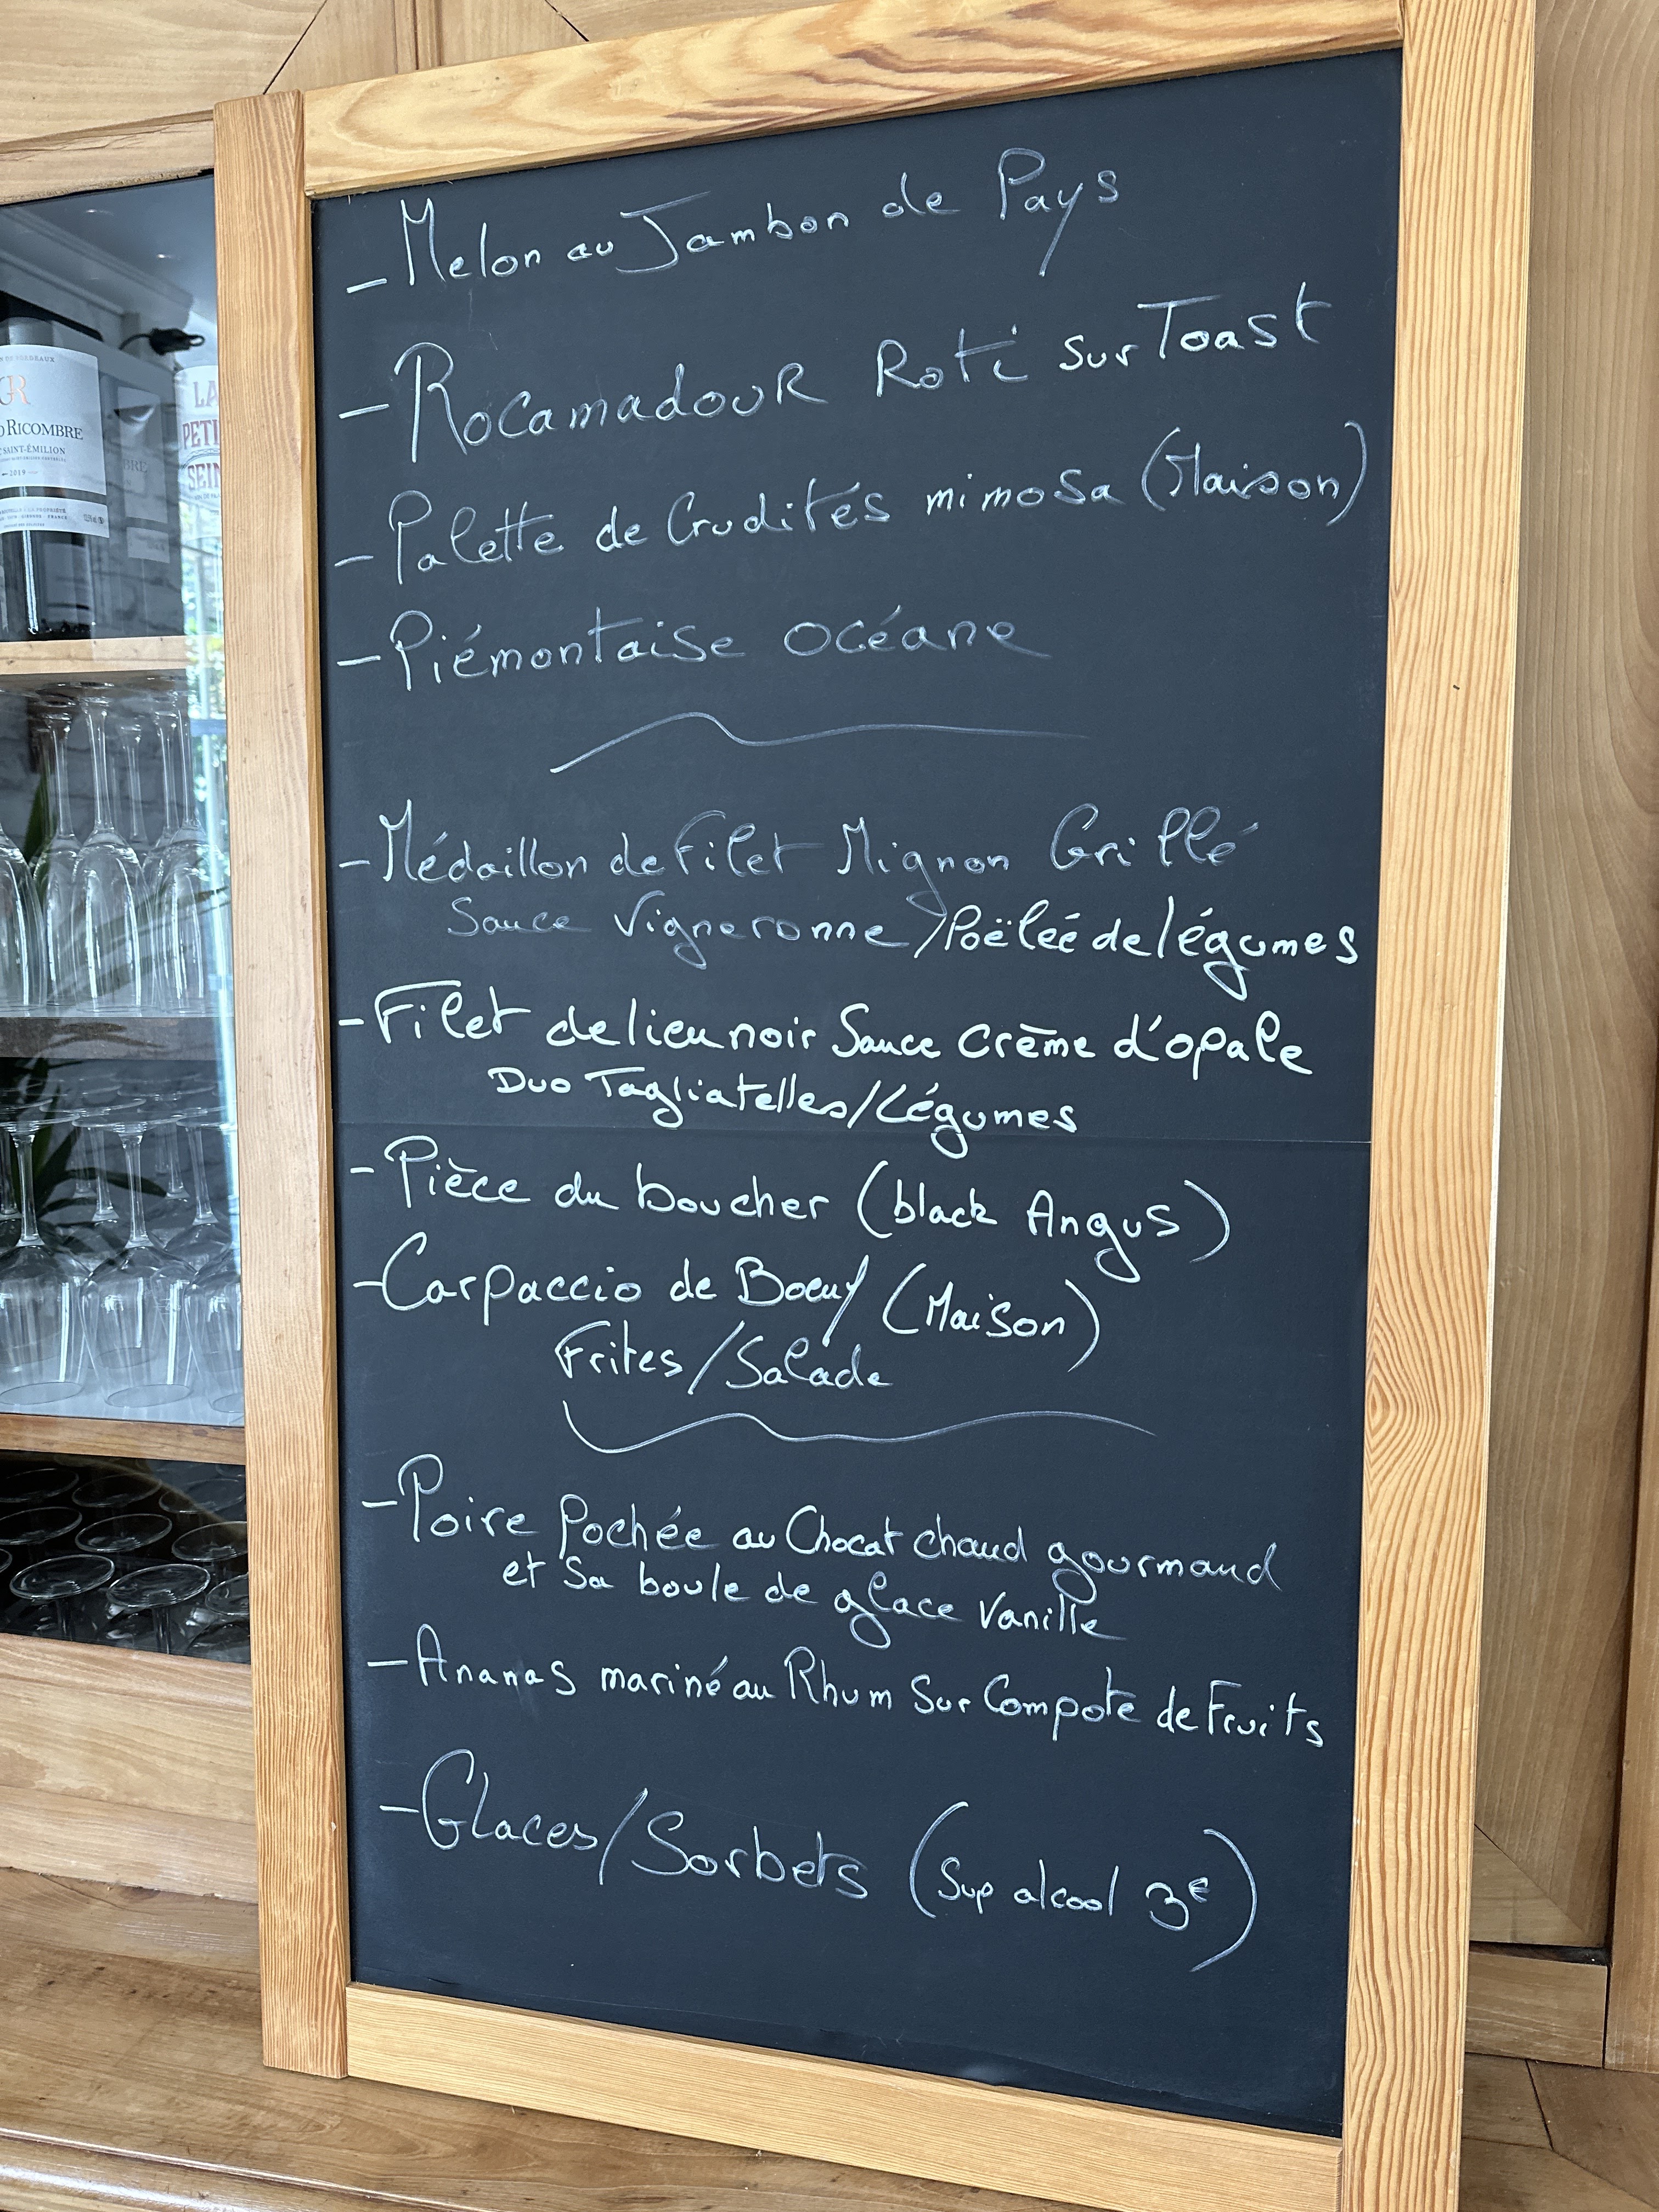 - Melon au Jambon de Pays
- Rocamadour Roti sur Toast
- Palette de Crudités mimosa (Maison)
- Piémontaise océane
- Médaillon de Filet Mignon Grillé
Sauce Vigneronne/Poëlée de légumes
- Filet de lieu noir Sauce crème d'opale
Duo Tagliatelles/Légumes
- Pièce du boucher (black Angus)
- Carpaccio de Boeuf (Maison)
Frites/Salade
- Poire Pochée au Chocat chaud gourmand
et Sa boule de glace Vanille
- Ananas mariné au Rhum Sur Compote de Fruits
- Glaces/Sorbets (Sup alcool 3€)
RICOMBRE
SAINT-ÉMILION
2019
LA
PETI
SEIN